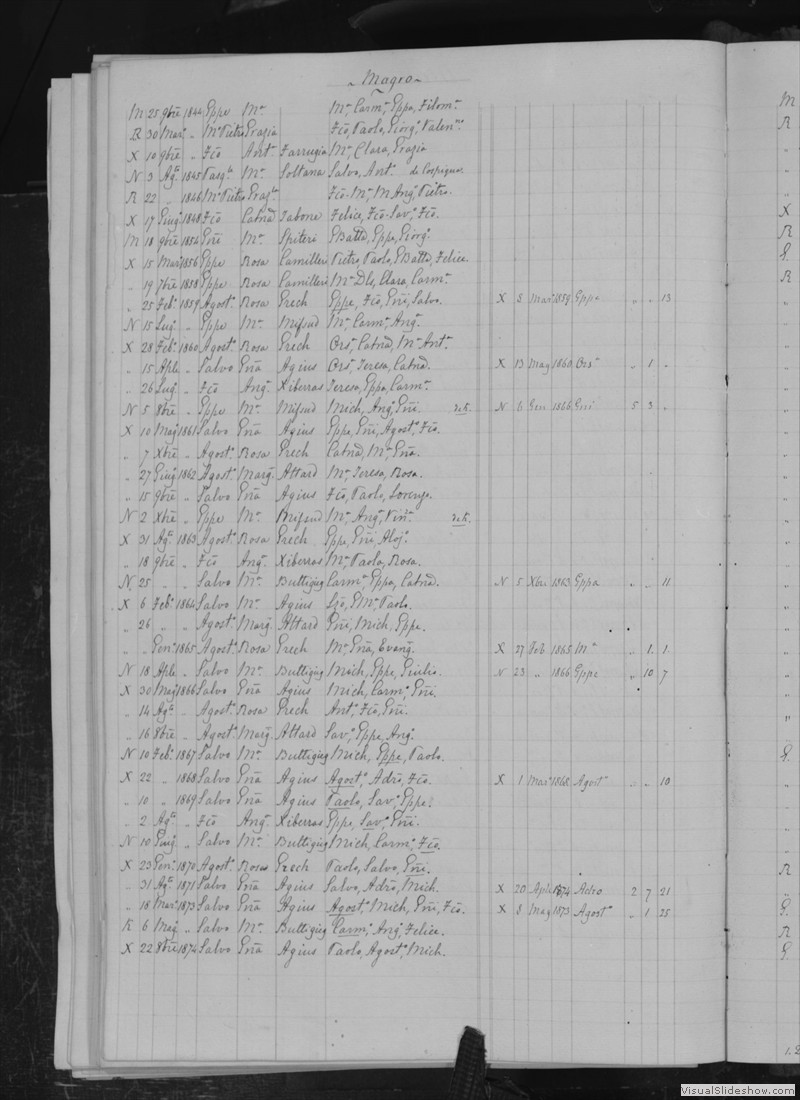 ~ Magro ~
M 25 9bre 1844 Eppe Ma Ma, Carma, Eppa, Filoma
R 30 Mar. " Ma Pietro Grazia Fco, Paolo, Giorgo, Valen.
X 10 9bre " Fco Anta Farrugia Ma, Clara, Grazia
N 3 Aga 1845 Pasqle Ma Soltana Salva, Anta de Cospiguor
R 22 " 1846 Ma Pietro Graza Fco-Ma, M Anga, Pietro.
X 17 Giug 1848 Fco Catna Tabone Felice, Fco-Sava, Fco.
M 18 9bre 1854 Gni Ma Spiteri GBatta, Eppe, Giorga
X 15 Mar 1856 Eppe Rosa Camilleri Pietro Paolo, GBatta, Felice
" 19 7bre 1858 Eppe Rosa Camilleri Ma Dls, Clara, Carma
" 25 Feba 1859 Agosto Rosa Grech Eppe, Fco, Gni, Salva. X 5 Mar 1859 Eppe " " 13
N 15 Luga " Eppe Ma Mifsud Ma, Carma, Anga.
X 28 Feba 1860 Agosto Rosa Grech Orsa, Catna, Ma Anta
" 15 Aple " Salvo Gna Agius Orsa, Teresa, Catna. X 13 Mag 1860 Orsa " 1 "
" 26 Lug. " Fco Anga Xiberras Teresa, Eppa, Carma
N 5 8bre " Eppe Ma Mifsud Mich, Anga, Gni. N 6 Gen 1866 Gni 5 3 "
X 10 Mag 1861 Salvo Gna Agius Eppe, Gni, Agosto, Fco.
" 7 Xbre " Agosto Rosa Grech Catna, Ma, Gna.
" 27 Giug 1862 Agosto Marga Attard Ma, Teresa, Rosa.
" 15 9bre " Salvo Gna Agius Fco, Paolo, Lorenzo.
N 2 Xbre " Eppe Ma Mifsud Ma, Anga, Vina
X 31 Aga 1863 Agosto Rosa Grech Eppe, Gni, Aloja
" 18 9bre " Fco Anga Xiberras Ma, Paola, Rosa.
N 25 " " Salvo Ma Buttigieg Carma, Eppa, Catna. N 5 Xbre 1863 Eppa " " 11
X 6 Feba 1864 Salvo Ma Agius Ma, Paola.
" 26 " " Agosto Marga Attard Gni, Mich, Eppe.
" " Gena 1865 Agosto Rosa Grech Ma, Gna, Evang. X 27 Feb 1865 Ma " 1 1
N 18 Aple " Salvo Ma Buttigieg Mich, Eppe, Giulio. N 23 " 1866 Eppe " 10 7
X 30 Mag 1866 Salvo Gna Agius Mich, Carma, Gni.
" 14 Aga " Agosto Rosa Grech Anta, Fco, Gni.
" 16 8bre " Agosto Marga Attard Sava, Eppe, Anga
N 10 Feba 1867 Salvo Ma Buttigieg Mich, Eppe, Paolo.
X 22 " 1868 Salvo Gna Agius Agosto, Adro, Fco. X 1 Mar 1868 Agosto " " 10
" 10 " 1869 Salvo Gna Agius Paolo, Sava, Eppe.
" 2 Aga " Fco Anga Xiberras Eppe, Sava, Gni.
N 10 Giug " Salvo Ma Buttigieg Mich, Carma, Fco.
X 23 Gena 1870 Agosto Rosa Grech Paolo, Salvo, Gni.
" 31 Aga 1871 Salvo Gna Agius Salvo, Adro, Mich. X 20 Aple 1874 Adro 2 7 21
" 18 Mar 1873 Salvo Gna Agius Agosto, Mich, Gni, Fco. X 8 Mag 1873 Agosto " 1 25
R 6 Mag " Salvo Ma Buttigieg Carma, Anga, Felice.
X 22 8bre 1874 Salvo Gna Agius Paolo, Agosto, Mich.
VisualSlideshow.com